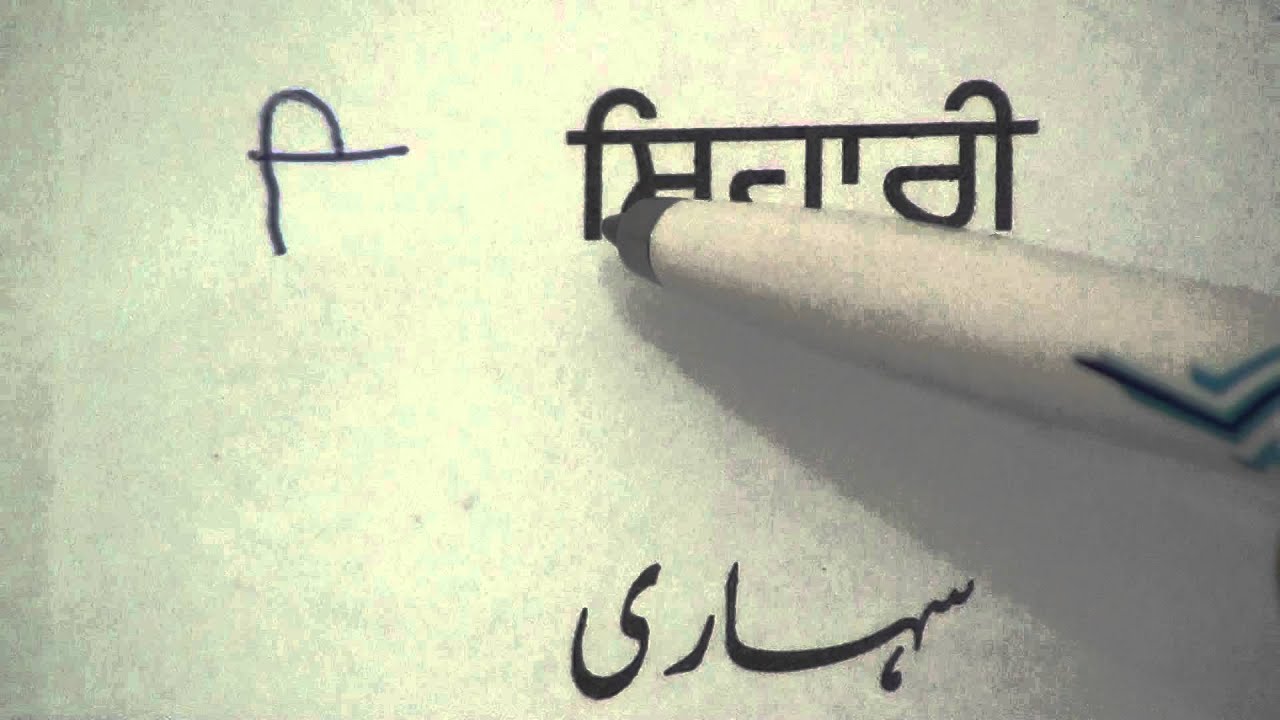 ਿ ਸਿਹਾਰੀ
سہاری